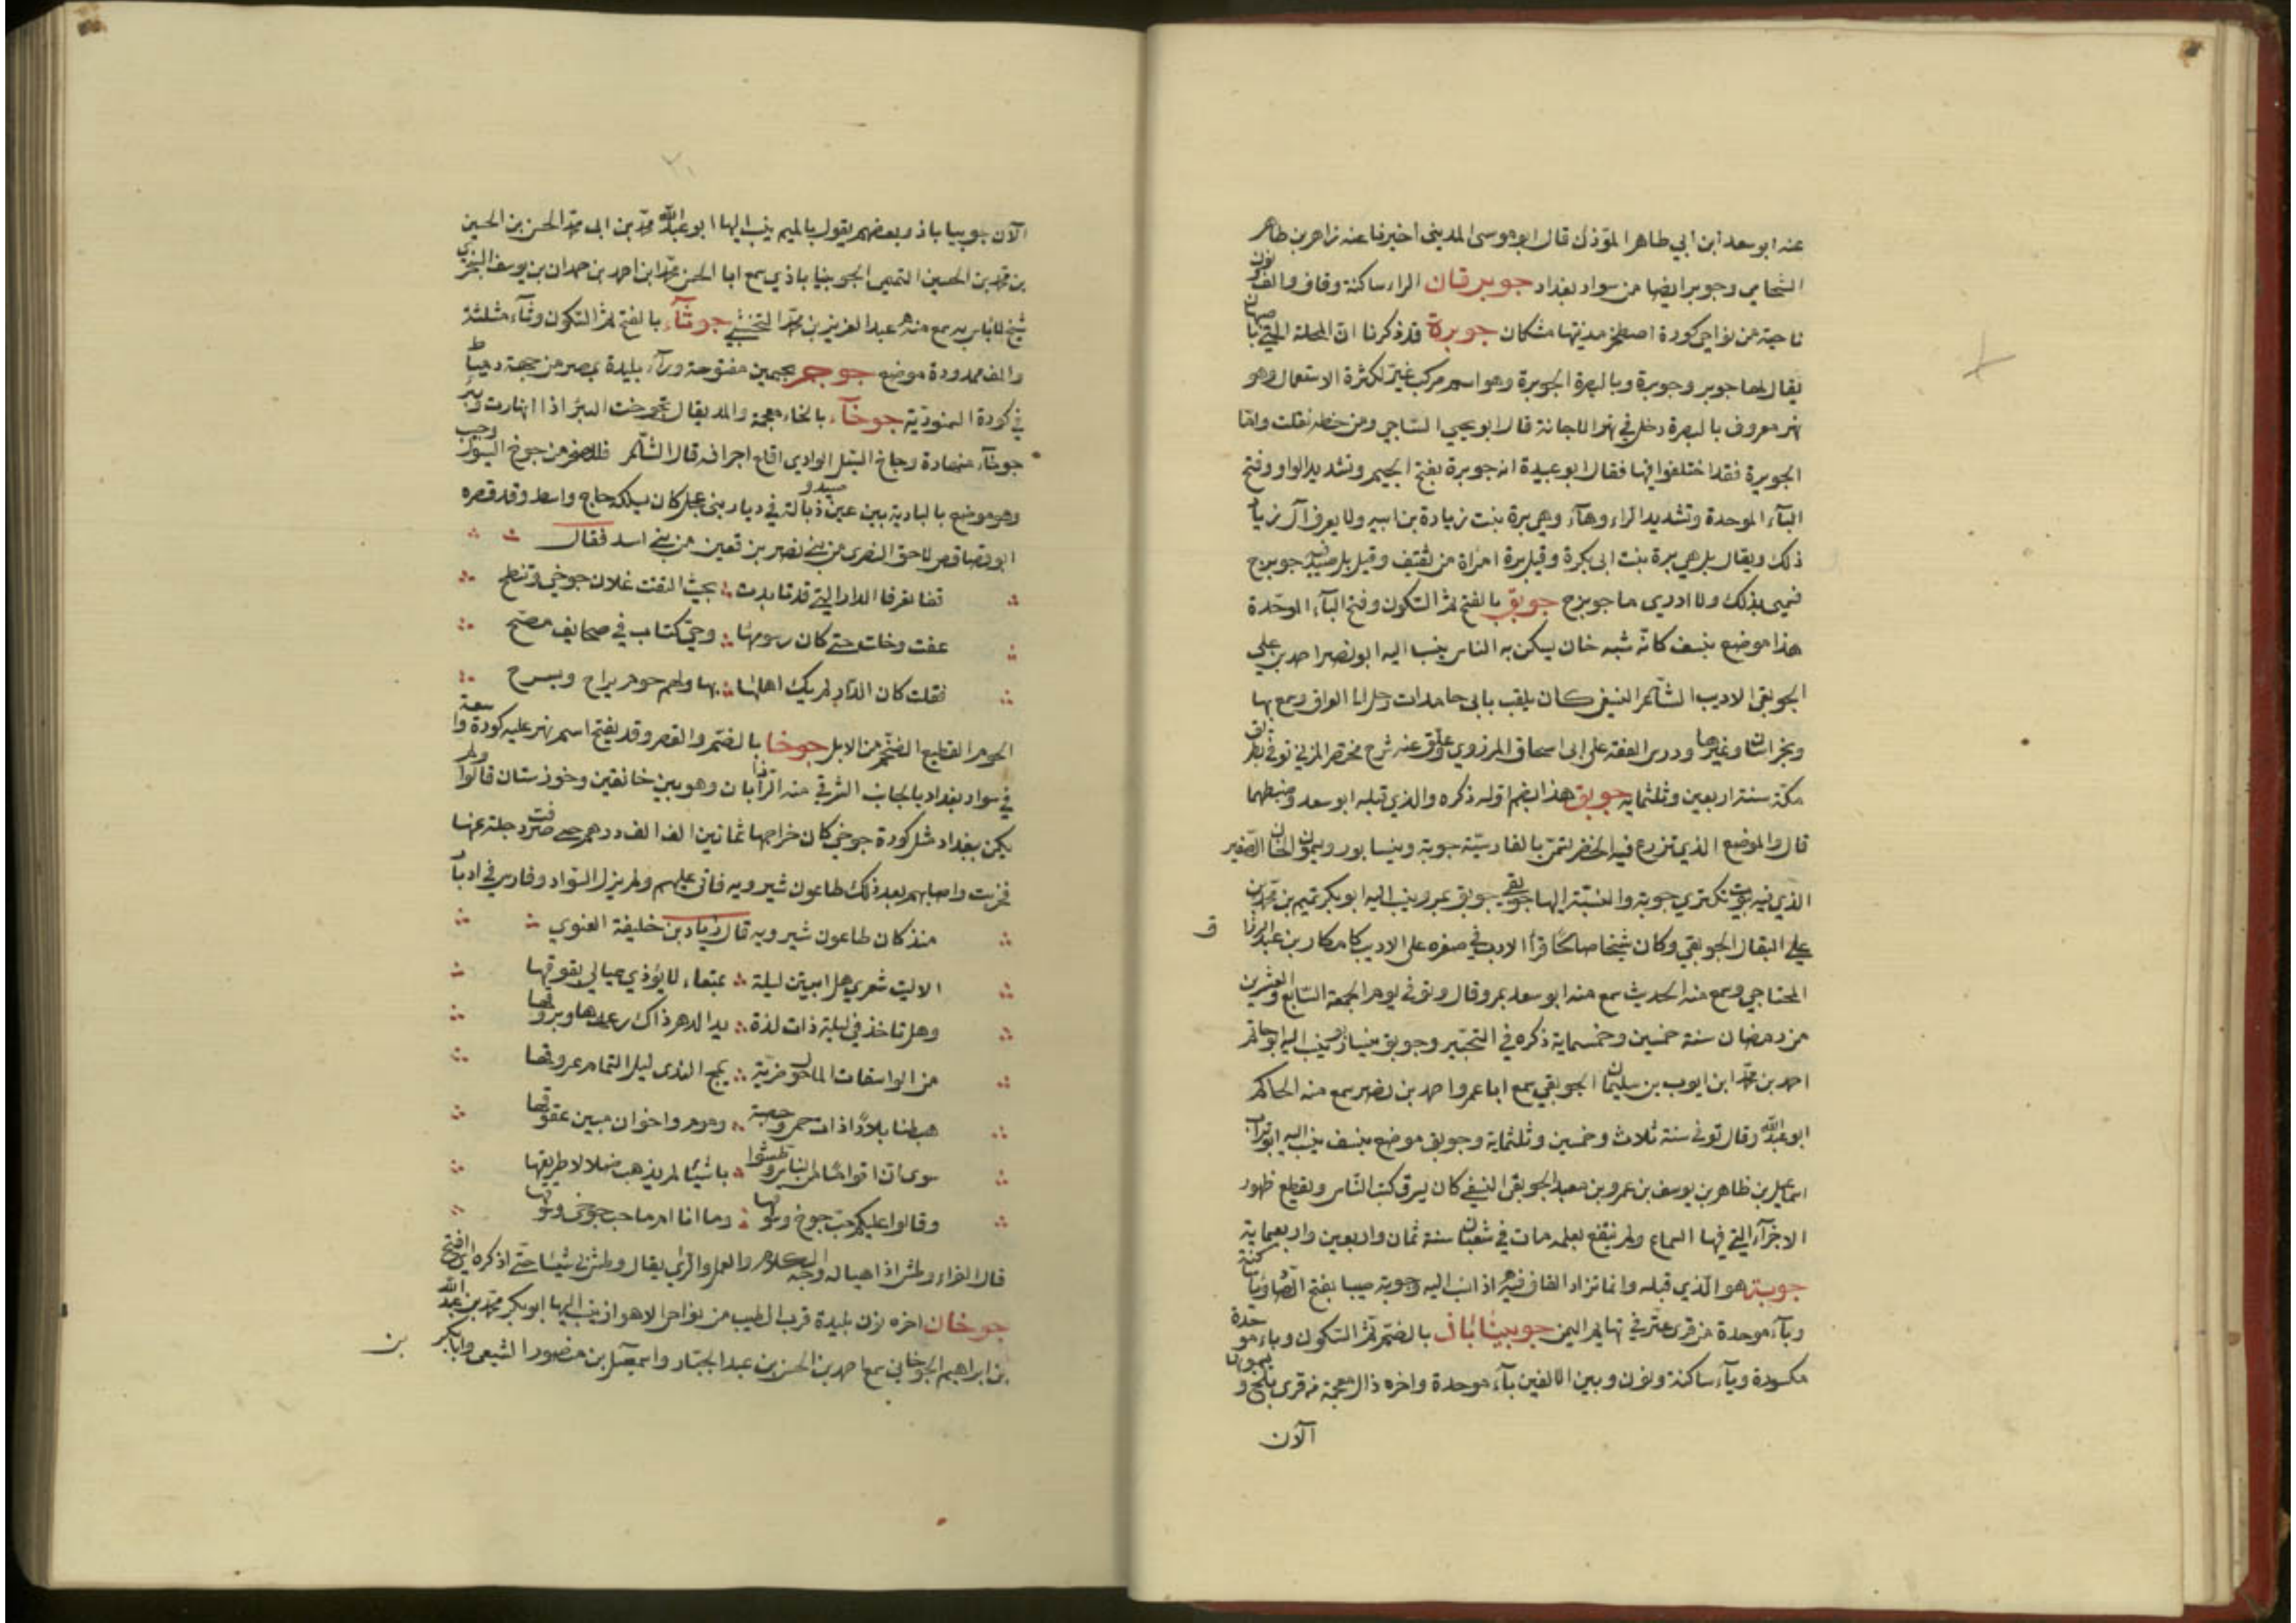 عنه ابو سعد ابن ابي طاهر المؤذن قال ابو موسى المديني اخبرنا عنه زاهر بن طاهر
الشحامي وجوبر ايضا من سواد بغداد جوبرقان الراء ساكنة وقاف والف ونون
ناحية من نواحي كورة اصطخر مدينتها مشكان جوبرة قد ذكرنا ان المحلة التي باصبهان
يقال لها جوبر وجوبرة وبالبصرة الجوبرة وهو اسم مركب غير لكثرة الاستعمال وهو
نهر معروف بالبصرة دخل في نهر الاجانة قال ابو يحيى الساجي ومن خطه نقلت واما
الجوبرة فقد اختلفوا فيها فقال ابو عبيدة انه جوبرة بفتح الجيم وتشديد الواو وفتح
البآء الموحدة وتشديد الراء وهآء وهي برة بنت زيادة بن ابيه ولا يعرف آل زياد
ذلك ويقال بل هي برة بنت ابي بكرة وقيل برة امراة من ثقيف وقيل بل جوبرج
فسمي بذلك ولا ادري ما جوبرج جوبق بالفتح ثم السكون وفتح البآء الموحدة
هذا موضع بنسف كانه شبه خان يسكن به الناس ينسب اليه ابو نصر احمد بن علي
الجوبقي الاديب الشاعر النسفي كان يلقب بابي حامدات رحل الى العراق وسمع بها
وبخراسان وغيرها ودرس الفقه على ابي اسحاق المروزي وعلق عنه شرح مختصر المزني توفي بطريق
مكة سنة اربعين وثلثمايه جوبق هذا بضم اوله ذكره والذي قبله ابو سعد وضبطهما
قال والموضع الذي تزرع فيه الخضر لتمر بالفارسية جوبة وبنيسابور ويسمون الخان الصغير
الذي فيه بيوت تكترى جوبة والنسبة اليها جوبقي جوبق بمرو ينسب اليه ابو بكر تميم بن محمد بن
علي البقال الجوبقي وكان شيخا صالحا قرأ الادب في صغره على الاديب كامكار بن عبد الرزاق
المحتاجي وسمع منه الحديث سمع منه ابو سعد بمرو وقال وتوفي يوم الجمعة السابع والعشرين
من رمضان سنة خمسين وخمسماية ذكره في التحبير وجوبق بنيسابور ينسب اليه ابو حاتم
احمد بن محمد ابن ايوب بن سليمان الجوبقي سمع ابا عمرو احمد بن نصر سمع منه الحاكم
ابو عبدالله وقال توفي سنة ثلاث وخمسين وثلثماية وجوبق موضع بنسف ينسب اليه ابو تراب
اسماعيل بن طاهر بن يوسف بن عمرو بن معبد الجوبقي النسفي كان يسرق كتب الناس ويقطع ظهور
الاجزآء التي فيها السماع ولم ينتفع بعلمه مات في شعبان سنة ثمان واربعين واربعماية
جوبة هو الذي قبله وانما تزاد القاف فيه اذا نسب اليه وجوبة صيبا بفتح الصاد ويا ساكنة
وبآء موحدة من قرى عثر في تهايم اليمن جوبيناباذ بالضم ثم السكون وباء موحدة
مكسورة ويآء ساكنة ونون وبين الالفين بآء موحدة واخره ذال معجمة من قرى بلخ ويسمونها
الآن
الآن جوبيباباذ وبعضهم يقول بالميم ينسب اليها ابو عبدالله محمد بن ابي محمد الحسن بن الحسين
بن محمد بن الحسين التميمي الجوبيناباذي سمع ابا الحسن محمد ابن احمد بن حمدان بن يوسف السجزي
شيخ لا باس به سمع منه عبد العزيز بن محمد النخشبي جوثآء بالفتح ثم السكون وثآء مثلثة
والف ممدودة موضع جوجر بجيمين مفتوحة ورآء بليدة بمصر من جهة دمياط
في كورة السمنودية جوخآء بالخاء معجمة والمد يقال تجوخت البئر اذا انهارت وبئر
جوخآء منهارة وجاخ السيل الوادي اقلع اجرافه قال الشاعر فللصخر من جوخ السيول وجيب
وهو موضع بالبادية بين عين صيد وزبالة في ديار بني عجل كان يسلكه حاج واسط وقد قصره
ابو قصاقص لاحق النصري من بني نصر بن قعين من بني اسد فقال
قفا نعرفا الدار التي قد تابدت بحيث التقت غلان جوخي وتنطح
عفت وخلت حتى كان رسومها وحي كتاب في صحايف مصح
فقلت كان الدار لم يك اهلها بها ولهم حوم يراح ويسرح
الحوم القطيع الضخم من الابل جوخا بالضم والقصر وقد يفتح اسم نهر عليه كورة واسعة
في سواد بغداد بالجانب الشرقي منه الراذان وهو بين خانقين وخوزستان قالوا ولم
يكن ببغداد مثل كورة جوخي كان خراجها ثمانين الف الف درهم حتى صرفت دجلة عنها
فخربت واصابهم بعد ذلك طاعون شيرويه فاتى عليهم ولم يزل السواد وفارس في ادبار
منذ كان طاعون شيرويه قال زياد بن خليفة الغنوي
الا ليت شعري هل ابيتن ليلة بميثاء لا يؤذي عيالي بقوقها
وهل تاخذني ليلة ذات لذة يد الدهر ذاك رعدها وبروقها
من الواسقات المآ حول ضرية يمج الندى ليل التمام عروقها
هبطنا بلادا ذات حمى وحصبة وموم واخوان مبين عقوقها
سوى ان اقواما من الناس وطشوا باشيآء لم يذهب ضلالا طريقها
وقالوا عليكم حب جوخ وسوقها وما انا ام ما حب جوخي وسوقها
قال الفراء وطش اذا هيا له وجه الكلام والعمل والراي يقال وطش لي شيئا حتى اذكره اي افتح
جوخان اخره نون بليدة قرب الطيب من نواحي الاهواز ينسب اليها ابو بكر محمد بن عبدالله
بن ابراهيم الجوخاني سمع احمد بن الحسن بن عبد الجبار واسمعيل بن منصور الشيعي وابا بكر
بن